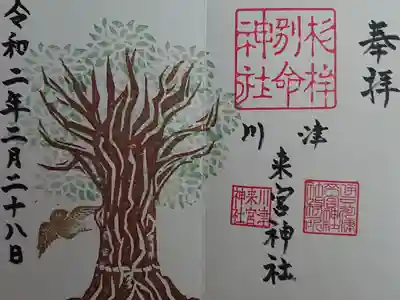 奉拝
杉桙別命神社
川津
来宮神社
川津来宮神社
令和二年二月二十八日